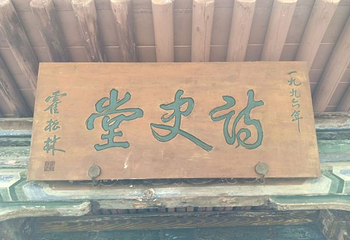 一九九六年
诗史堂
霍松林